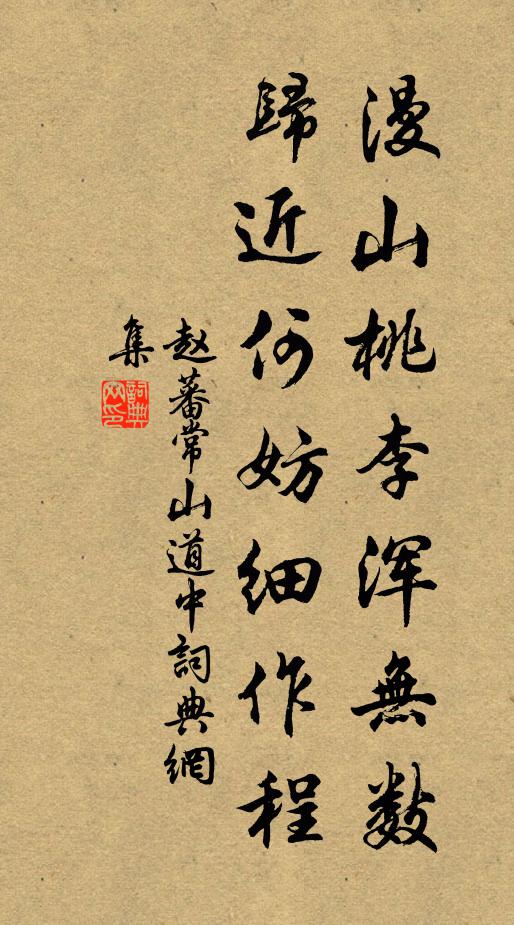 漫山桃李浑無數
歸近何妨细作程
赵蕃常山道中詞典網
集
詞典
网印